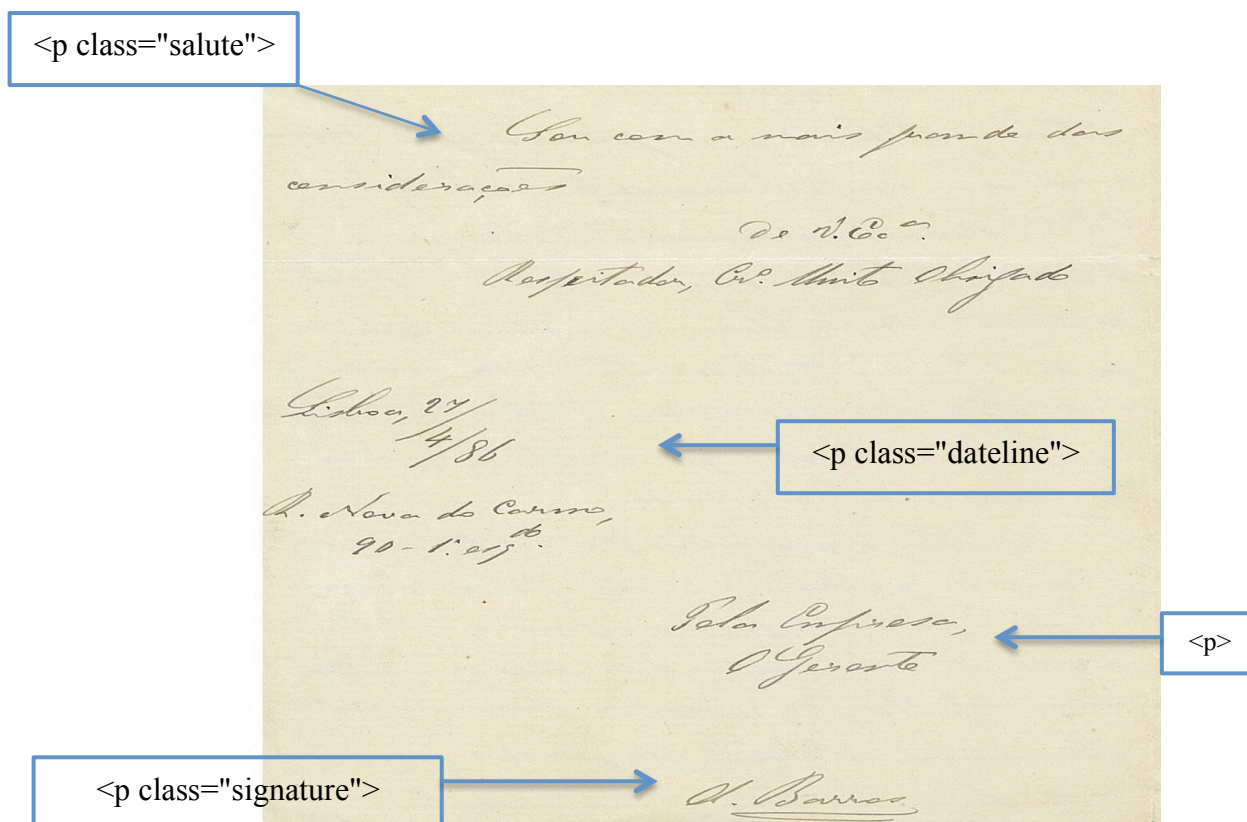 <p class="salute">
Sou com a mais grande das
considerações
De V. Ex.ª
Respeitador, Cr.º Muito Obrigado
Lisboa, 27/
4/86
<p class="dateline">
R. Nova do Carmo,
90 - 1.º esq.do
Pela Empresa,
O Gerente
<p>
<p class="signature">
A. Barros